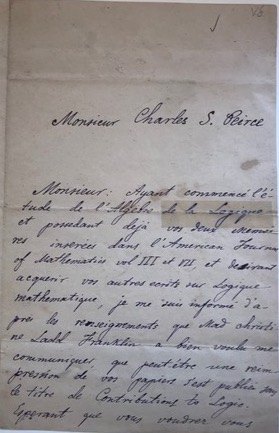 V6
Monsieur Charles S. Peirce
Monsieur: Ayant commencé l'é-
tude de l'Algèbre de la Logique
et possedant déjà vos deux memoi-
res inserées dans l'American Journal
of Mathematics vol III et VII et desirant
acquerir vos autres ecrits sur Logique
mathematique, je me suis informé d'a-
pres les renseignements que Mad Christi-
ne Ladd Franklin a bien voulu me
communiquer, que peut-être une reim
pression de vos papiers s'est publié sous
le titre de Contributions to Logic.
Esperant que vous voudrez vous